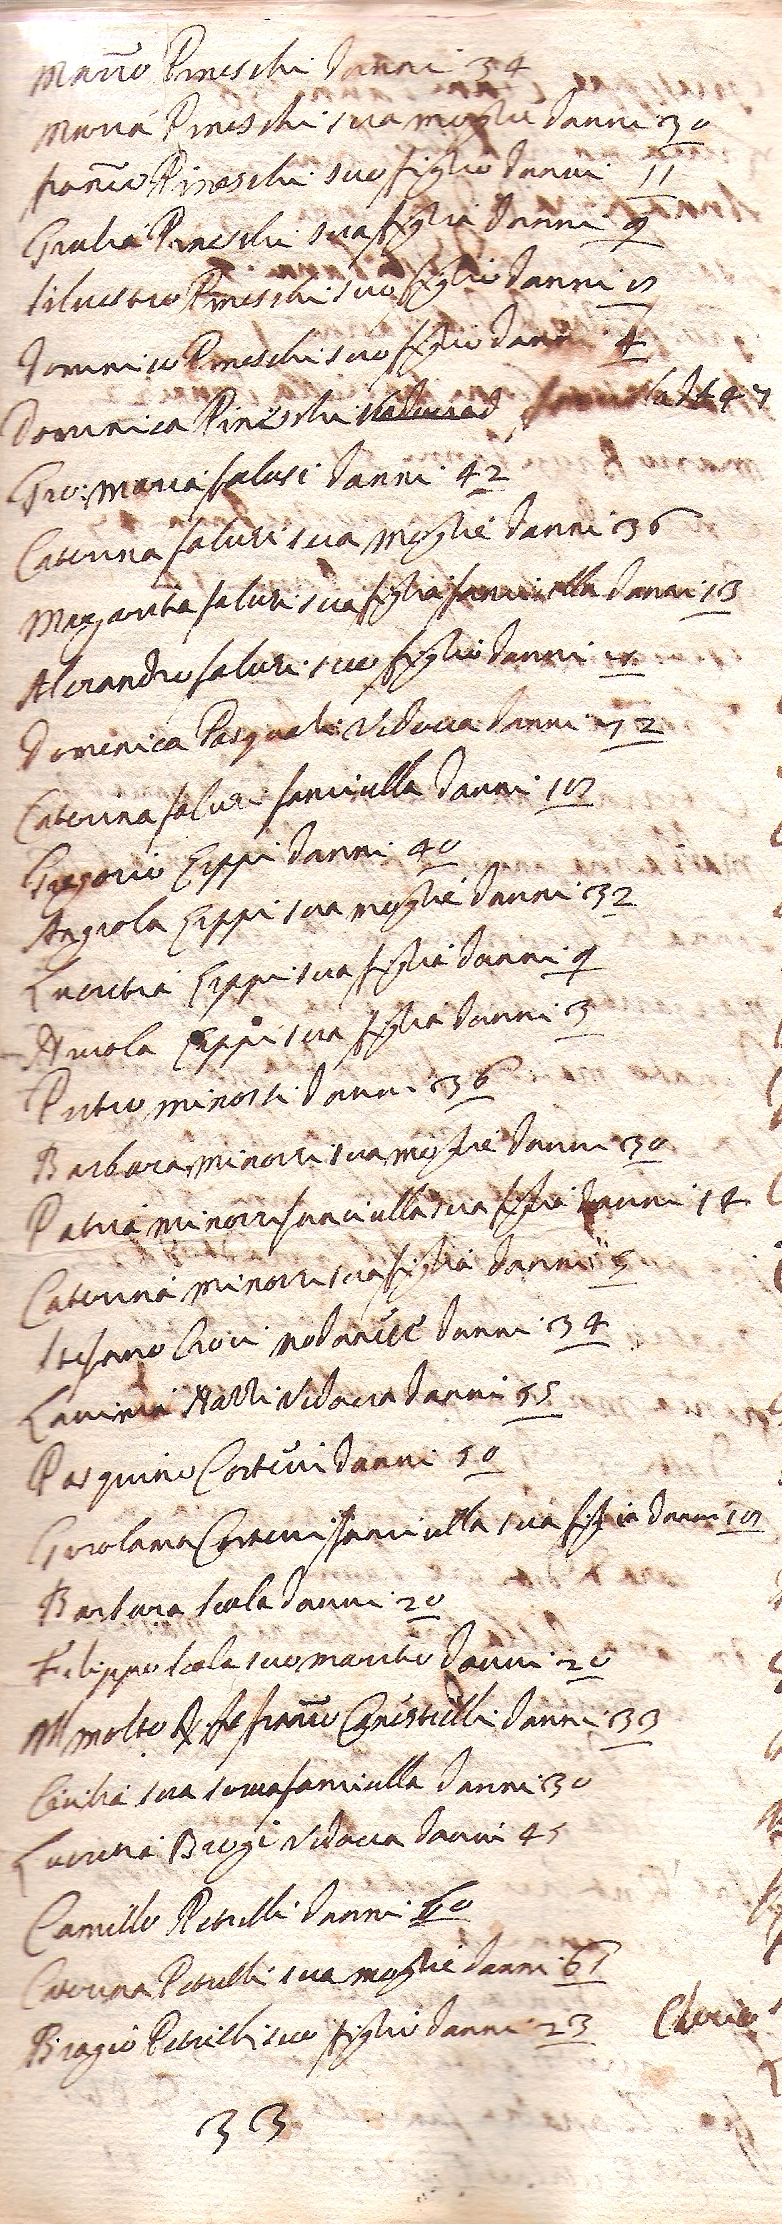 Marco Pineschi d'anni 34
Maria Pineschi sua moglie d'anni 30
fran.co Pineschi suo figlio d'anni 11
Giulia Pineschi sua figlia d'anni 9
Silvestro Pineschi suo figlio d'anni
Domenico Pineschi suo figlio d'anni 4
Domenica Pineschi 47
Gio: Maria saluri d'anni 42
Caterina saluri sua moglie d'anni 36
Margarita saluri sua figlia fanciulla d'anni 13
Alesandro saluri suo figlio d'anni
Domenica Pasquali Vedova d'anni 72
Caterina saluri fanciulla d'anni
Gregorio d'anni 40
Angiola sua moglie d'anni 32
Lucretia sua figlia d'anni 9
sua figlia d'anni 3
Pietro minorri d'anni 36
Barbara minorri sua moglie d'anni 30
minorri fanciulla sua figlia d'anni 14
Caterina minorri sua figlia d'anni 5
Stefano d'anni 34
Lavinia Vedova d'anni 55
Pasquino Cortini d'anni 50
Girolama Cortini fanciulla sua figlia d'anni
Barbara scala d'anni 20
Filippo scala suo marito d'anni 20
Molto fran.co d'anni 33
Cicilia sua fanciulla d'anni 30
Lucretia Brogi Vedova d'anni 45
Camillo Petrilli d'anni 60
Caterina Petrilli sua moglie d'anni 61
Biagio Petrilli suo figlio d'anni 23
33